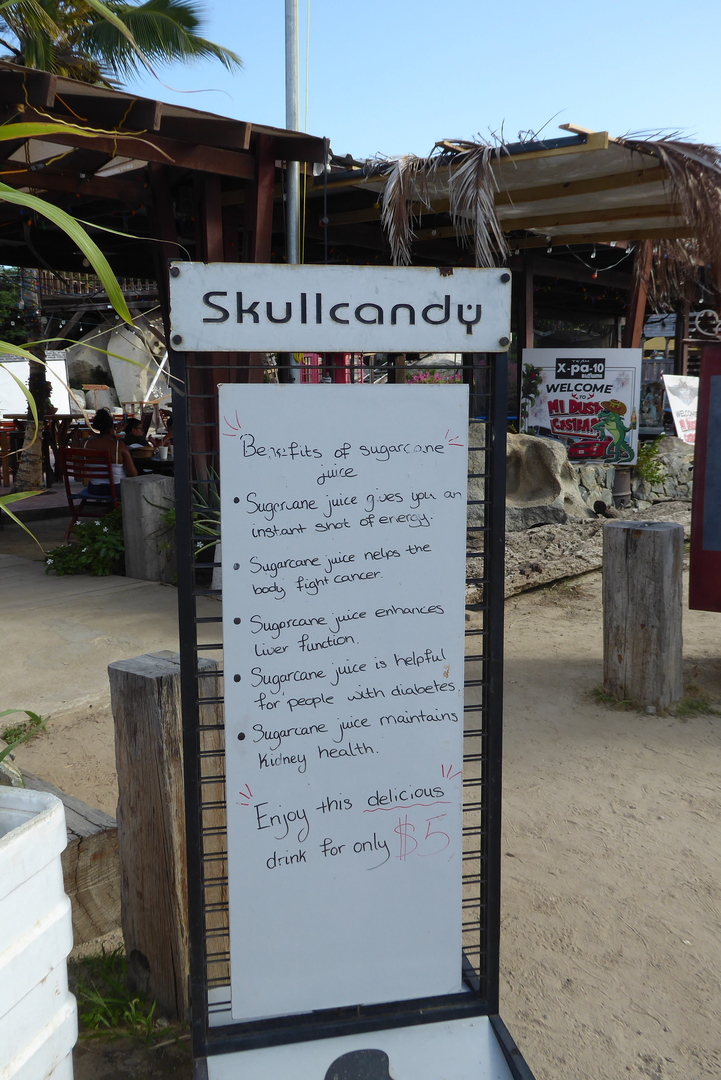 Skullcandy
Benefits of sugarcane
juice
• Sugarcane juice gives you an
instant shot of energy.
• Sugarcane juice helps the
body fight cancer.
• Sugarcane juice enhances
liver function.
• Sugarcane juice is helpful
for people with diabetes.
• Sugarcane juice maintains
kidney health.
Enjoy this delicious
drink for only $5
X-pa-10
WELCOME
TO
MI DUSHI